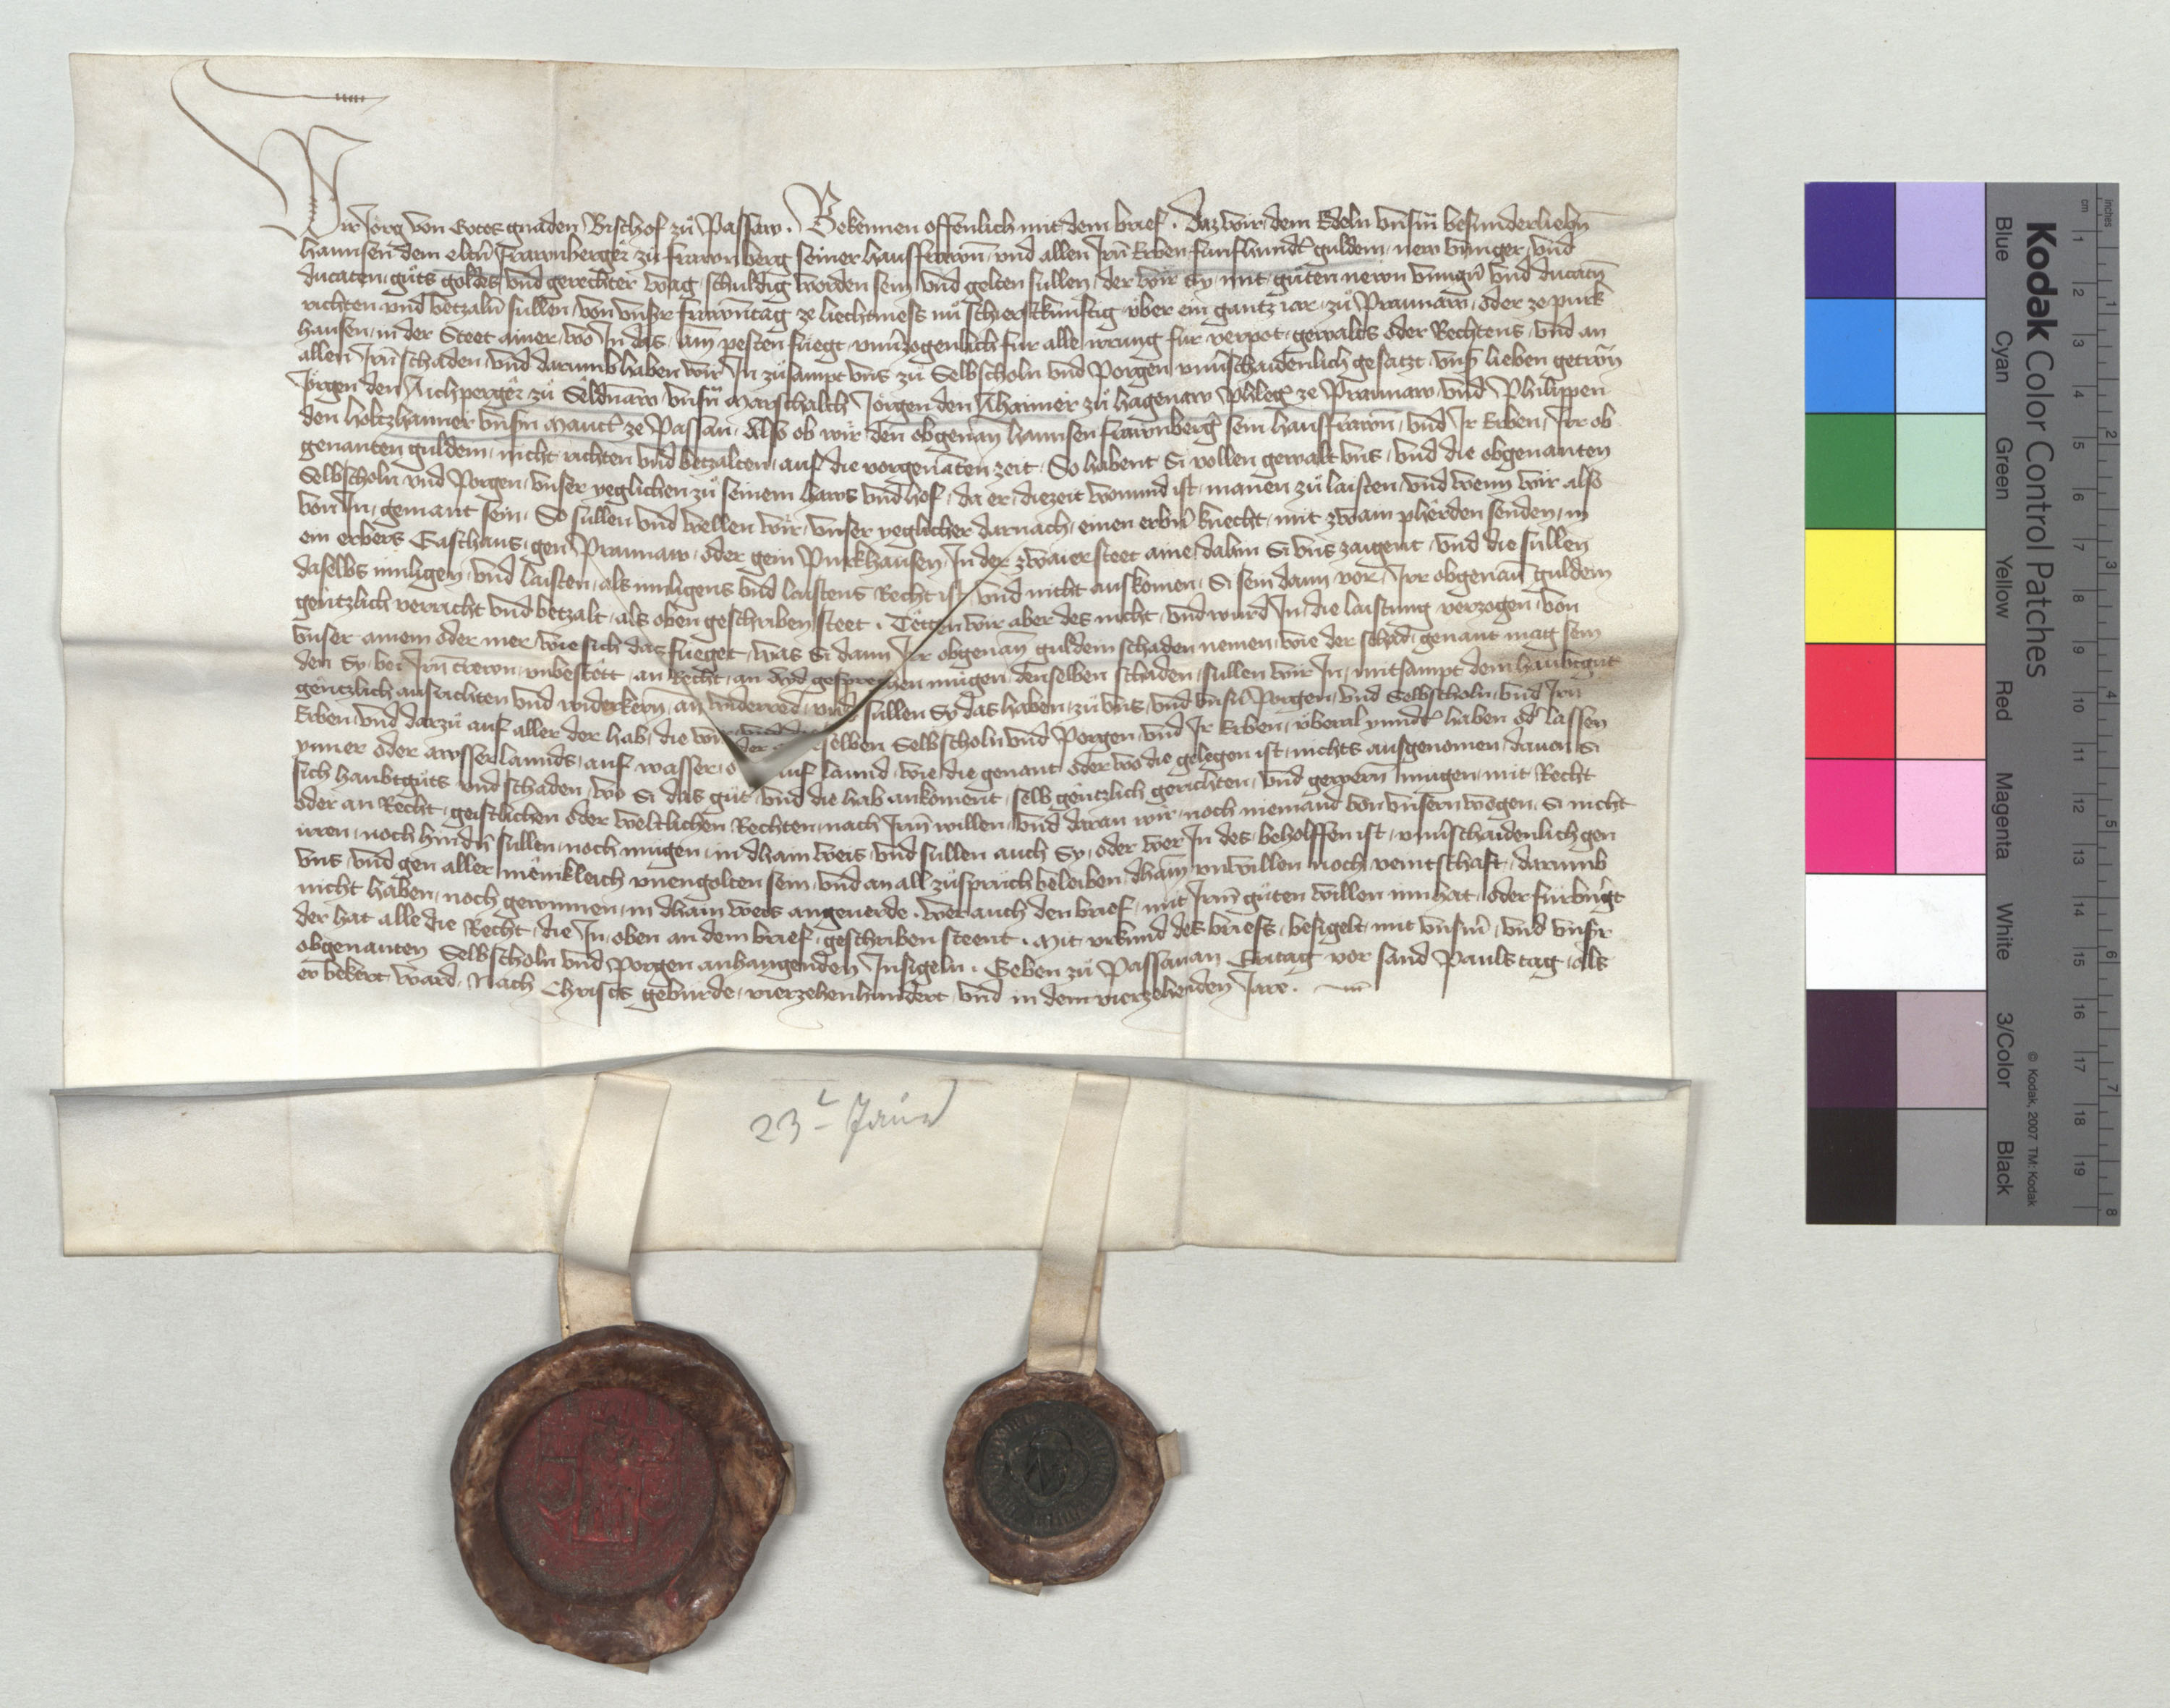 Wir Jorg von Gotes gnaden Bischof zů Passaw . Bekennen offenlich mit dem brief . Daz wir dem Edeln vnsm̄ besunderliebn̄
Hannsen dem eltn̄ Frawnberger zů Frawnberg seiner hausfrawn̄ vnd allen Irn̄ Erben fünfhundt guldein new vnnger vnd
ducaten gůts goldes vnd gerechter wag schuldig worden sein vnd gelten sullen der wir sy mit gůten newn vnngn̄ vnd ducatn̄
richten vnd betzaln̄ sullen von vnsr frawntag ze liechtmess nů schierstkünftig vber ein gantz iar zů Prawnaw oder ze purk
hausen in der Steet ainer wo In das am pesten füegt vnuerzogenlich für alle irrung für verpot gewalts oder Rechtens vnd an
allen Irn̄ schaden vnd darumb haben wir In zůsampt vns zů Selbscholn vnd Porgen vnuerschaidenlich gesatzt vnsr lieben getrŵn
Jörgen den Aichperger zů Seldnaw vnsn̄ Marschalch Jörgen den Ahaimer zů Hagenaw Phleg ze Prawnaw vnd Philippen
den holtzhaimer vnsm Mautt ze Passau . Also ob wir den obgenan̄ Hannsen Frawnberg sein hausfrawn̄ vnd Ir Erben Irr ob
genanten guldein nicht richten vnd betzalten auf die vorgenāten zeit . So habent Si vollen gewalt vns vnd die obgenanten
Selbscholn vnd Porgen vnser yeglichen zů seinem haws vnd hof da er diezeit wonund ist manen zů laisten vnd wenn wir also
von In gemant sein . So sullen vnd wellen wir vnser yeglicher darnach einen erbn̄ knecht mit zwain pherden senden in
ein erbers Gasthaus gen Prawnaw oder gein Purkhausen In der zwaier steet aine dahin Si vns zaigent vnd die sullen
daselbs innligen vnd laisten als innligens vnd laistens Recht ist vnd nicht auskomen Si sein dann vor Irr obgenan̄ guldein
gentzlich verricht vnd betzalt als oben geschriben steet . Tetten wir aber des nicht vnd wurd In die laistung verzogen von
vnser ainem oder mer wie sich das füeget was Si dann Irr obgenan̄ guldein schaden nemen wie der schad genant mag sein
den Sy bei Irn̄ trewn vnbestett an Recht an Ayd gesprechen mügen denselben schaden sullen wir In mitsampt dem haubtgut
gentzlich ausrichten vnd widerkern̄ an widerred vnd sullen Sy das haben zů vns vnd vnsn̄ Porgen vnd Selbscholn vnd Irn̄
Erben vnd darzů auf aller der hab die wir selben Selbscholn vnd Porgen vnd Ir Erben vberal ynndt haben od lassen
ynner oder awsser lannds auf wasser auf lannd wie die genant oder wo die gelegen ist nichts ausgenomen dauon Si
sich haubtgůts vnd schaden wo Si das gůt vnd die hab ankoment selb gentzlich gerichten vnd gewern̄ mügen mit Recht
oder an Recht geistlichen oder weltlichen Rechten nach Irm̄ willen vnd daran wir noch niemand von vnsern wegen Si nicht
irren noch hindn̄ sullen noch mügen in dhain weis vnd sullen auch Sy oder wer In des beholffen ist vnuerschaidenlich gen
vns vnd gen aller menikleich vnengolten sein vnd an all zůsprüch beleiben dhain vnwillen noch veintschaft darumb
nicht haben noch gewinnen in dhain weis angeuerde . Wer auch den brief mit Irm̄ gůten willen innhat oder fürbringt
der hat alle die Recht die In oben an dem brief geschriben steent . Mit vrkund des briefs besigelt mit vnsm̄ vnd vnsr
obgenanten Selbscholn vnd Porgen anhangenden Insigeln . Geben zů Passau an Eritag vor sand Pauls tag als
er bekert ward Nach Christs gebürde vierzehenhundert vnd in dem vierzehenden Jare .
23t Jäner
Kodak Color Control Patches
© Kodak, 2007 TM: Kodak
Blue Cyan Green Yellow Red Magenta White 3/Color Black
cm 1 2 3 4 5 6 7 8 9 10 11 12 13 14 15 16 17 18 19
inches 1 2 3 4 5 6 7 8